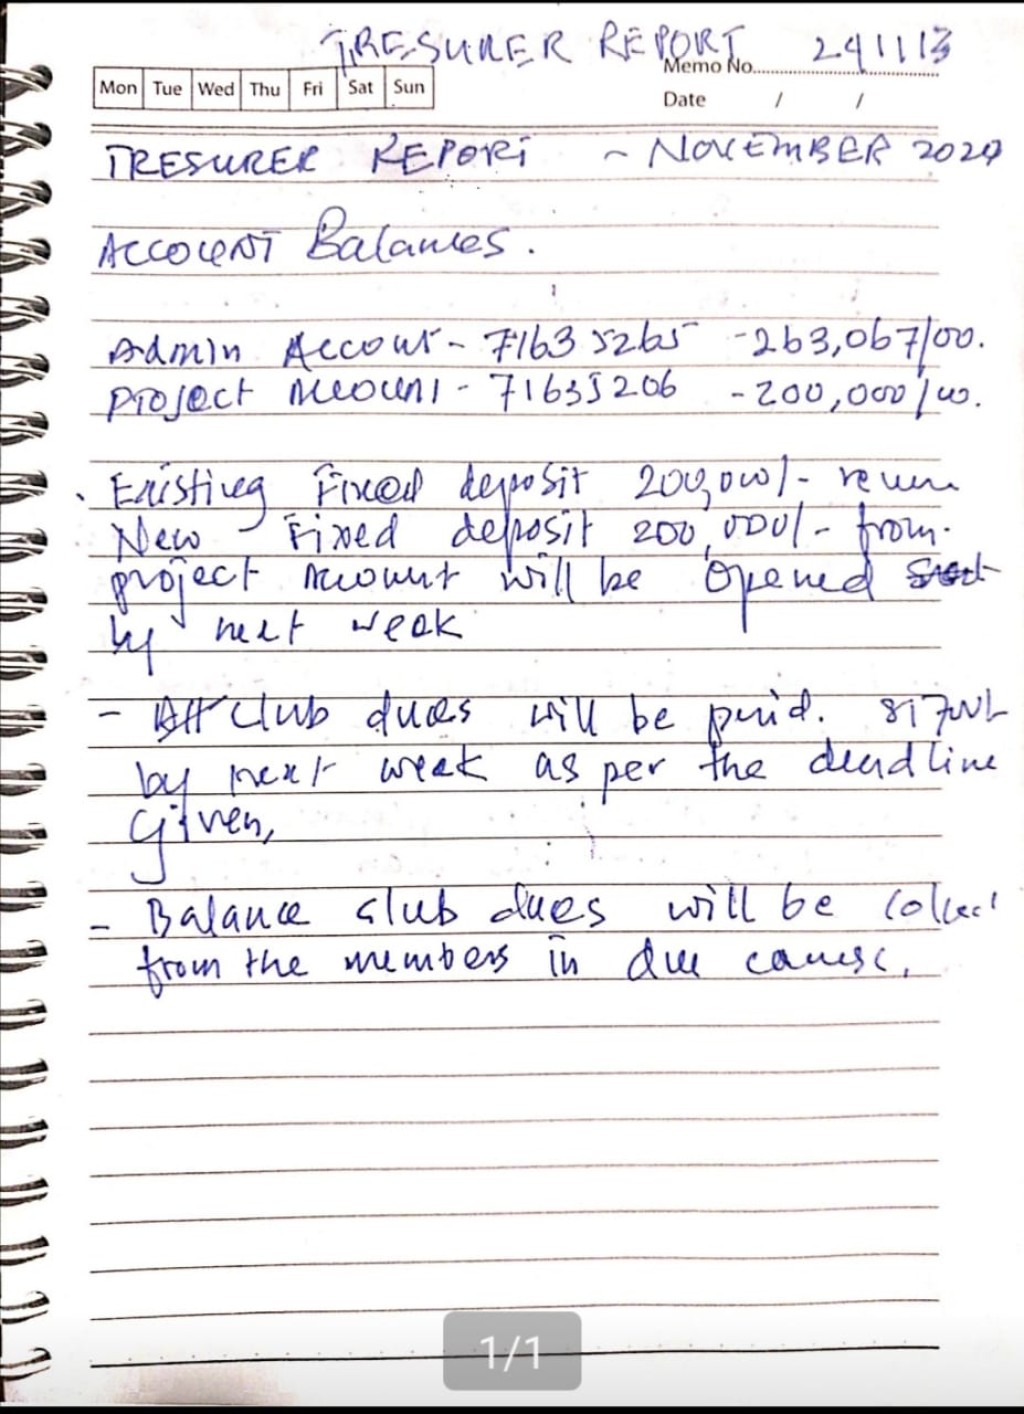 TRESURER REPORT 241113
Memo No.
Mon Tue Wed Thu Fri Sat Sun
Date / /
TRESURER REPORT - NOVEMBER 2024
ACCOUNT Balances.
Admin Account - 71635265 - 263,067/00.
Project Account - 71635206 - 200,000/00.
Existing Fixed deposit 200,000/-
New Fixed deposit 200,000/- from
project Account will be opened
by next week
- All club dues will be paid.
by next week as per the deadline
given,
- Balance club dues will be collect
from the members in due cause.
1/1